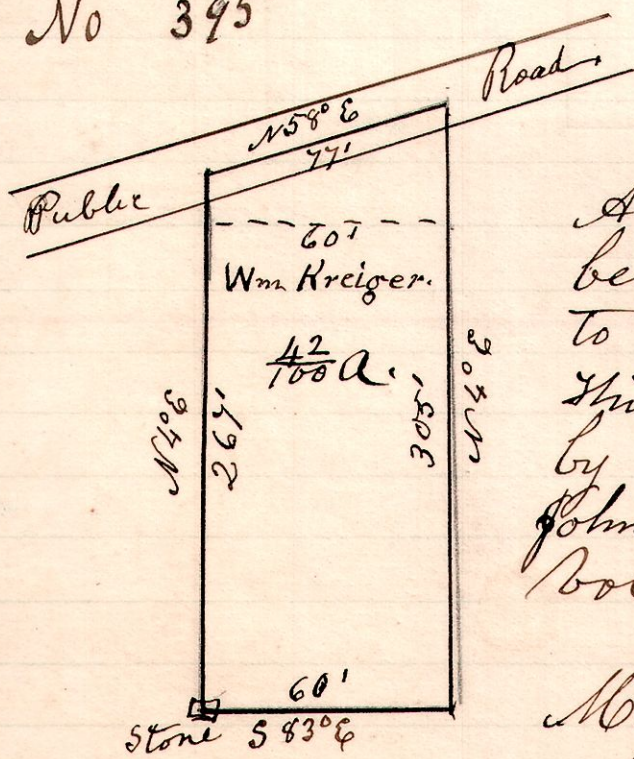 No 395
Road.
N58°E
77'
Public
60'
Wm Kreiger.
42/100 a.
N4°E
267'
305'
N4°E
60'
Stone S 83°E
A
be
to
thi
by
John
M